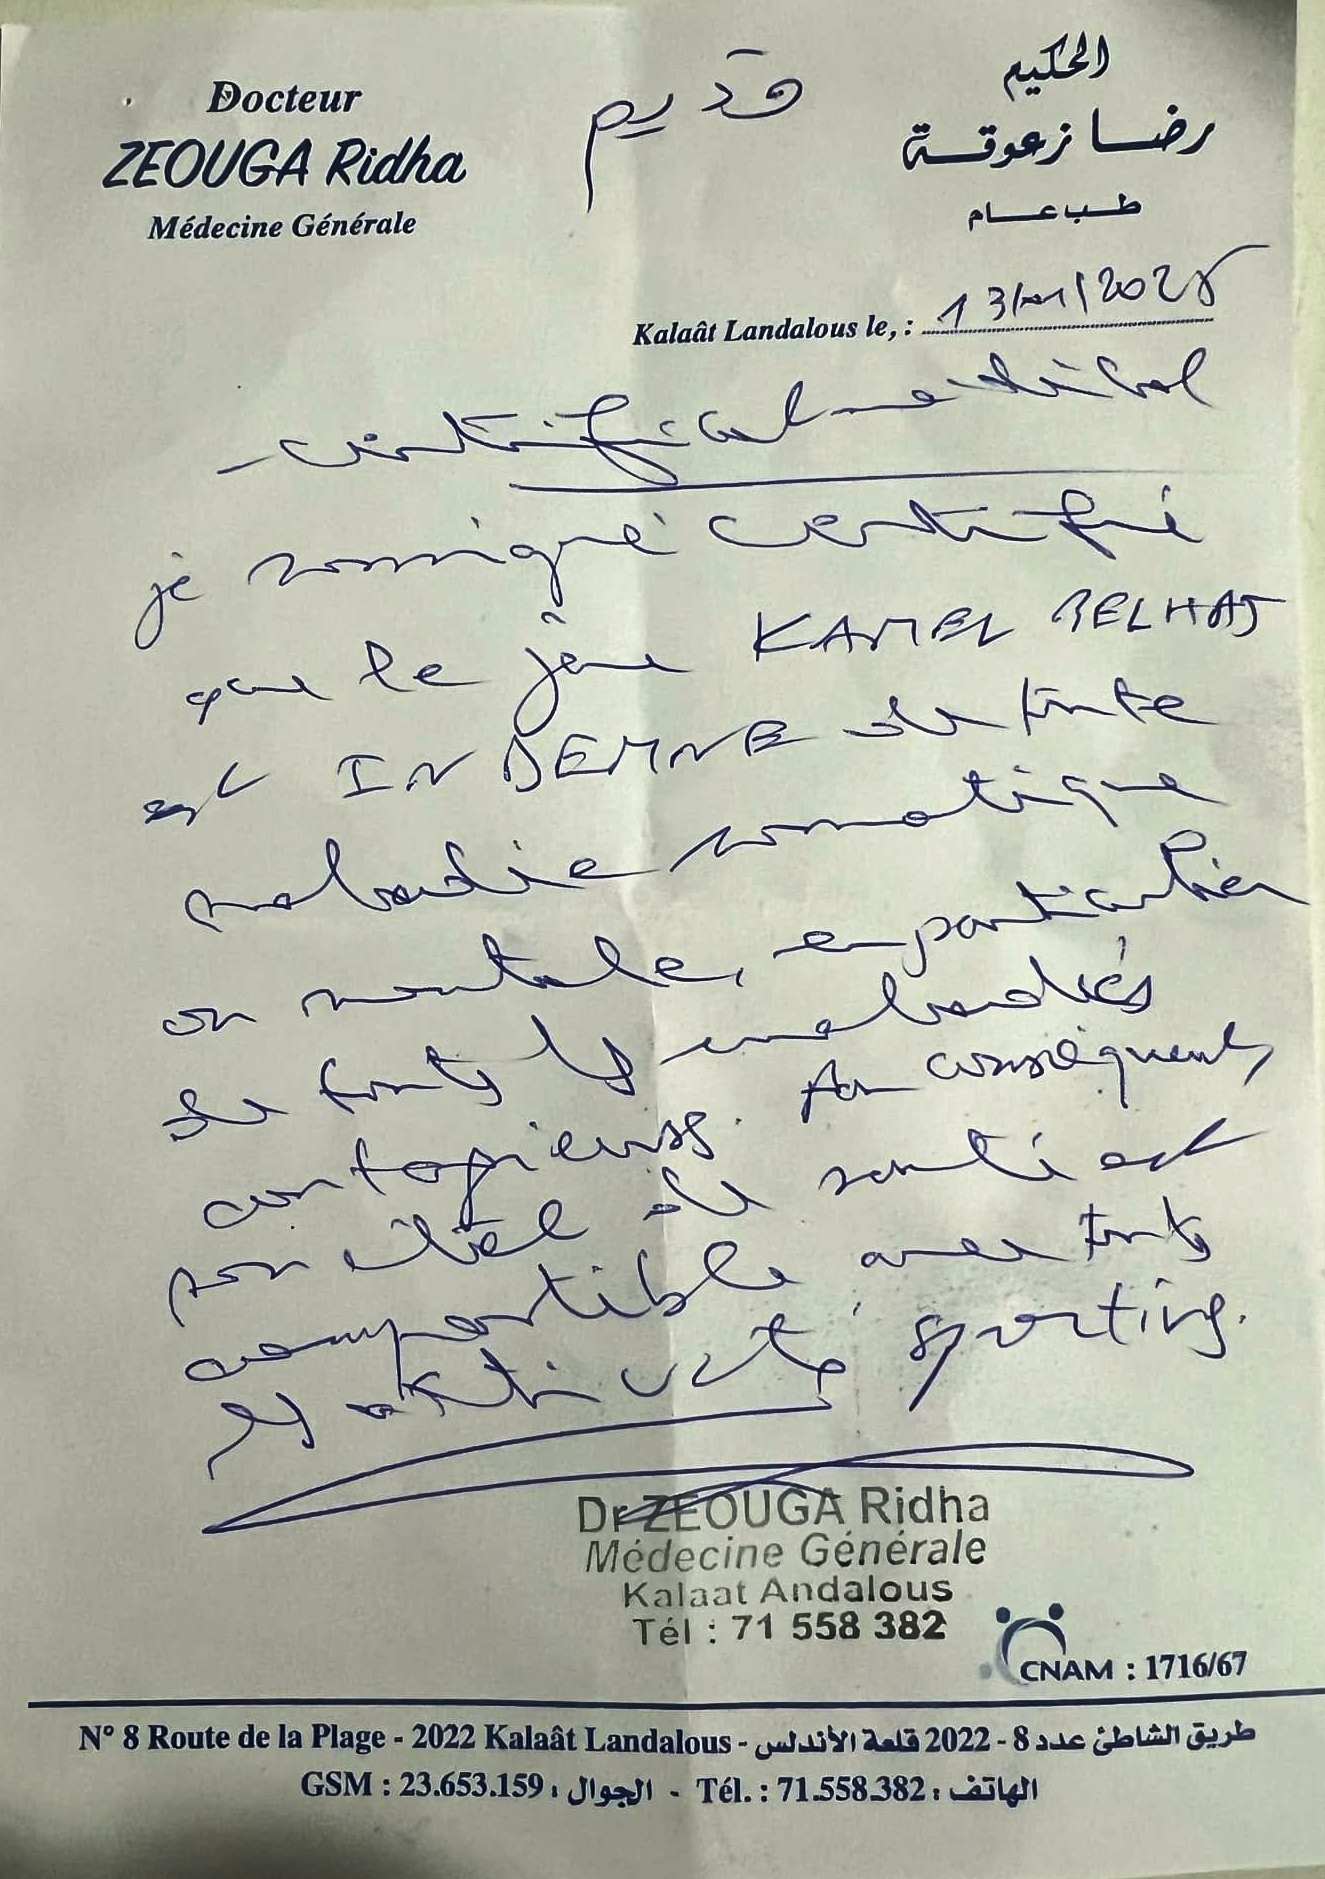 Docteur
ZEOUGA Ridha
Médecine Générale
قديم
الحكيم
رضا زعوقة
طب عام
Kalaât Landalous le, : 13/01/202
certificat médical
je soussigné certifié
que le jeune KAMEL BELHAJ
est INDEMNE de toute
maladie somatique
ou mentale, en particulier
de touts les maladies
contagieuses. Par conséquent,
son état de santé est
compatible avec touts
activité sporting.
Dr ZEOUGA Ridha
Médecine Générale
Kalaat Andalous
Tél : 71 558 382
CNAM : 1716/67
N° 8 Route de la Plage - 2022 Kalaât Landalous - طريق الشاطئ عدد 8 - 2022 قلعة الأندلس
GSM : 23.653.159 : الجوال - Tél. : 71.558.382 : الهاتف